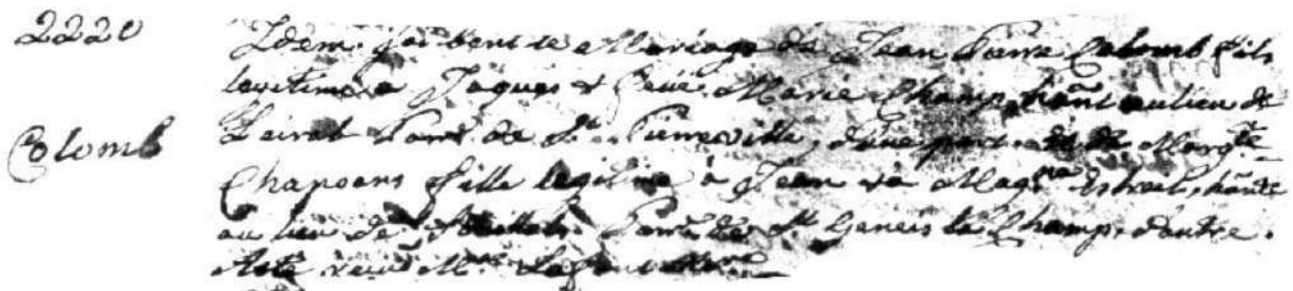 2220
Colomb
Idem. jai beni le Mariage de Jean Pierre Colomb fils
legitime a Jaques & feüe Marie Champ, hãnt au lieu de
Parr. de St. Pierreville, d'une part. et de Margte
Chapoans fille legitime à Jean & à Magne hãnte
au lieu de Parr. de St Geneis la Champ, d'autre.
Acte reçu Me.